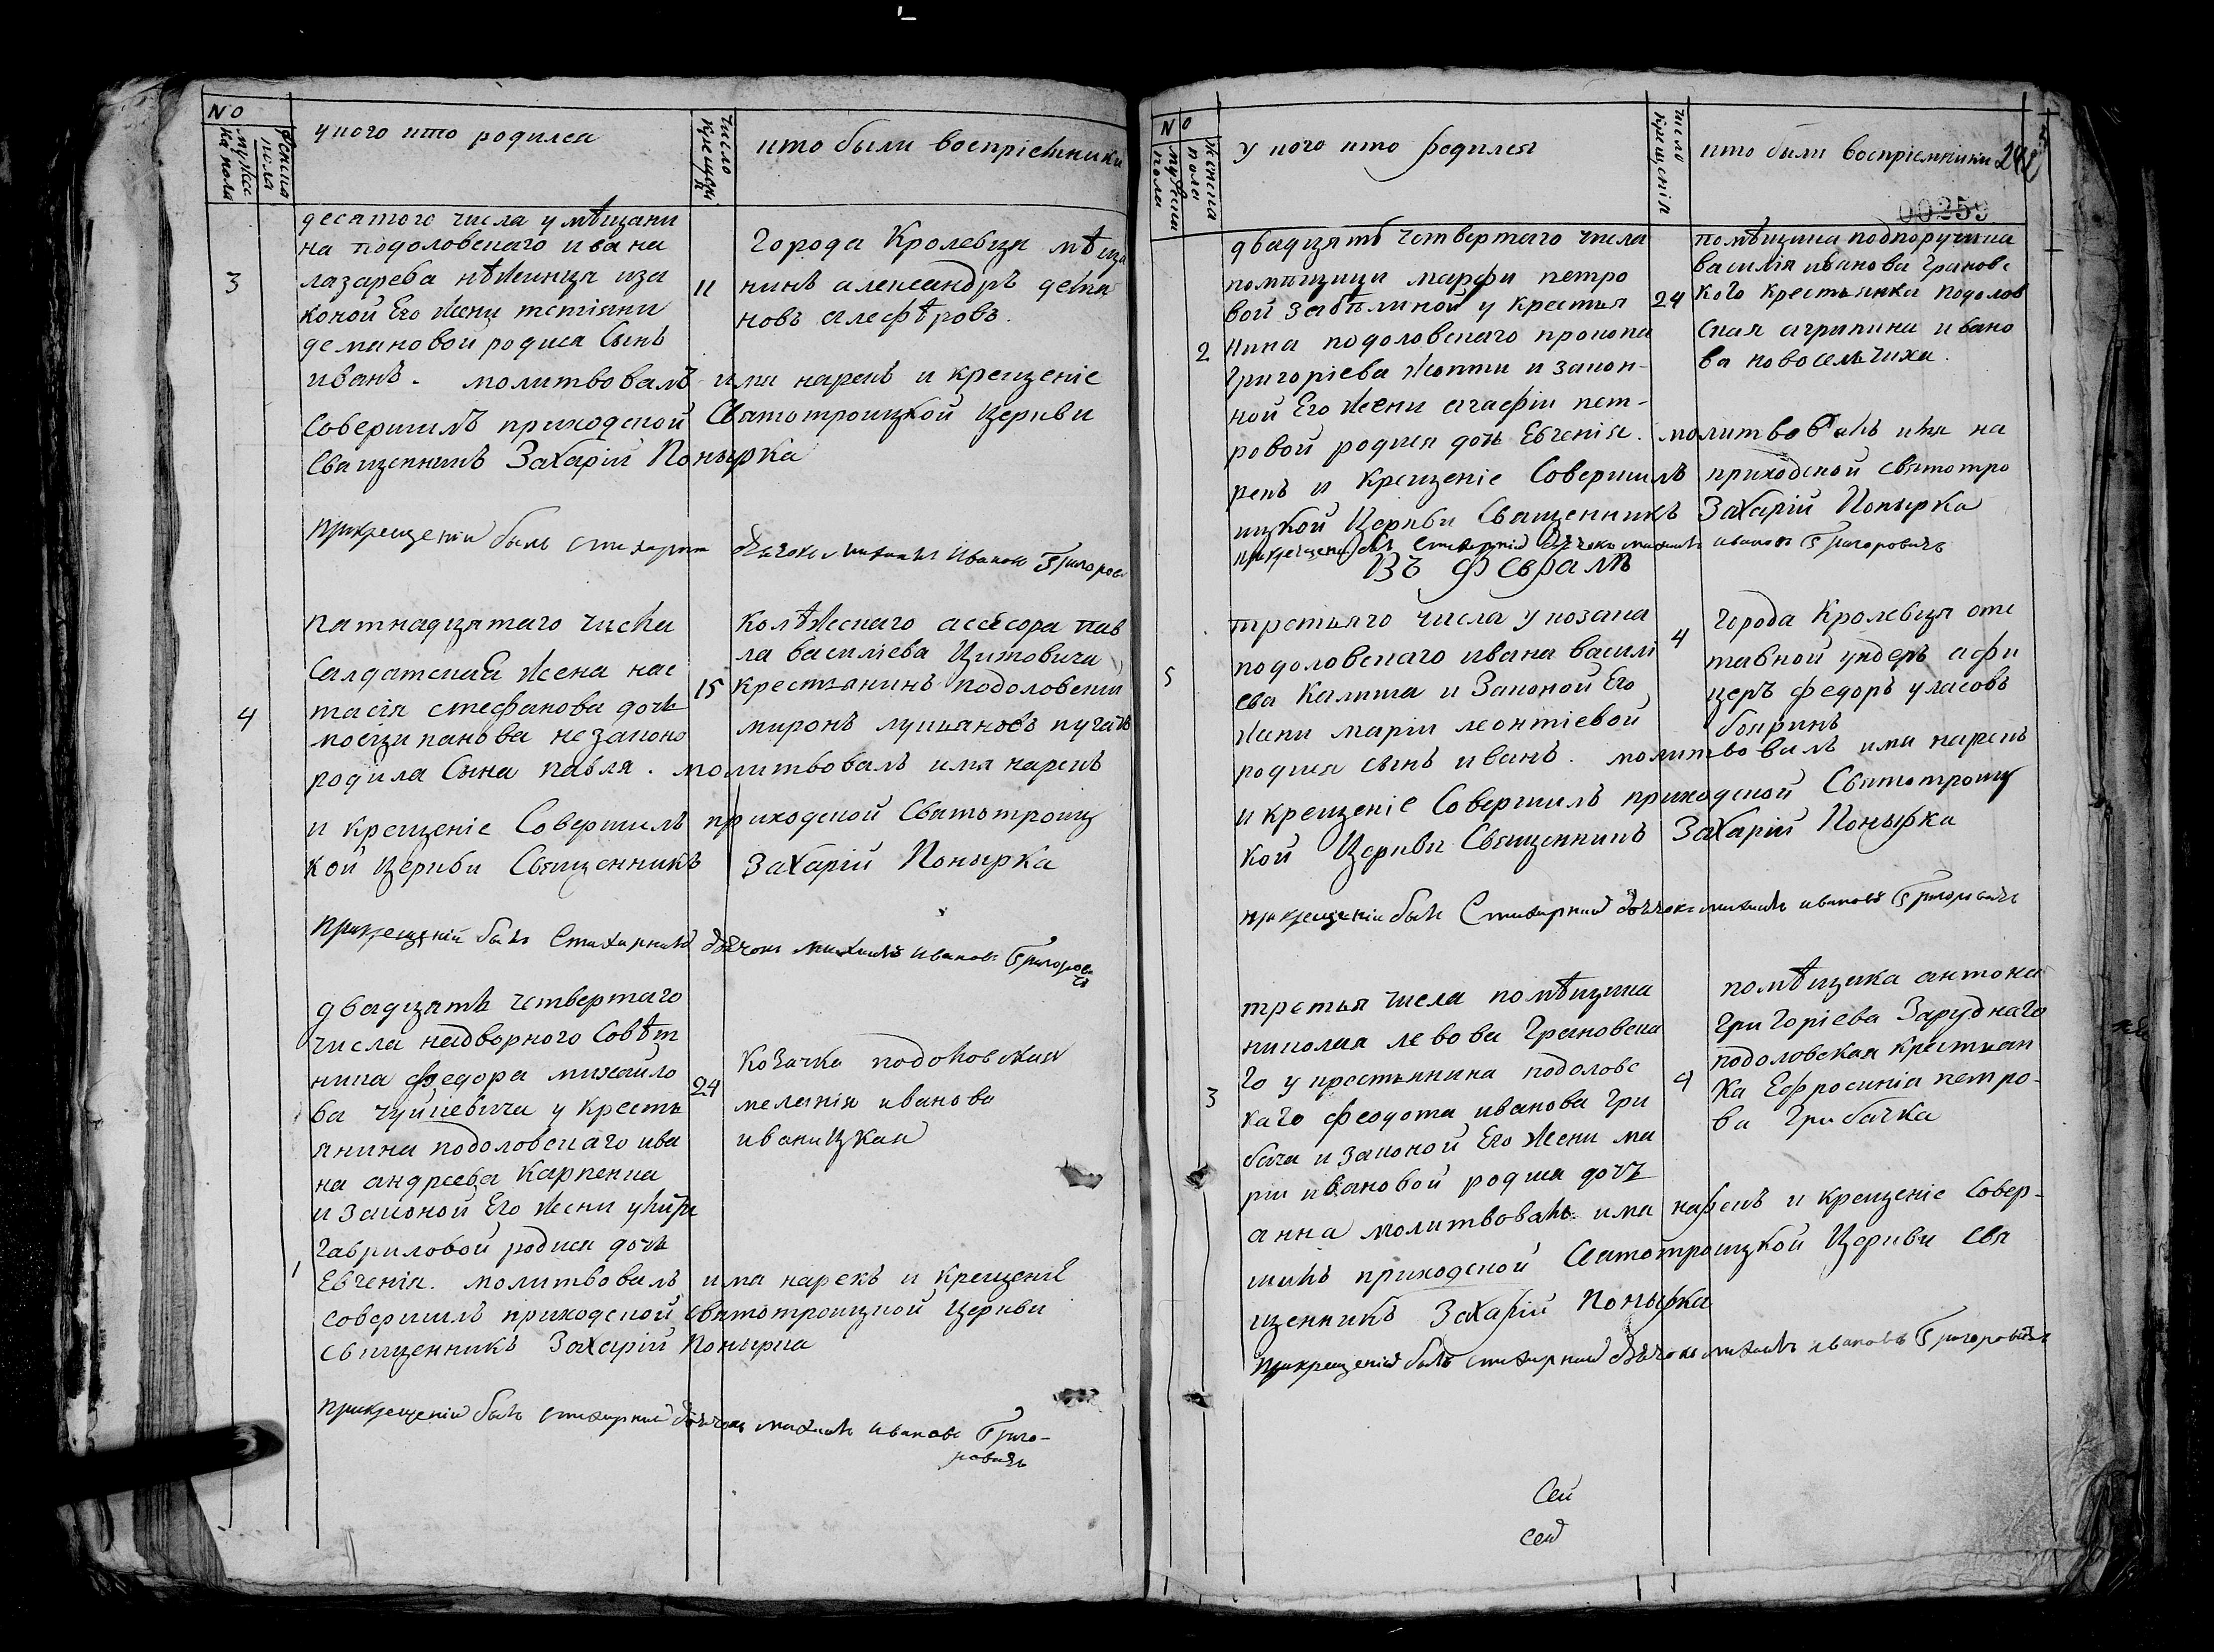 NO
женска пола
мужес ка пола
у кого кто родился
число крещен
кто были воспріемники
десятого числа у мѣщани
на подоловскаго ивана
лазарева нѣжинця иза
коной Его жены татіяни
демановой родися Сынъ
иванъ. молитвовалъ имя нарекъ и крещеніе
Совершилъ приходской Святотроицкой Церкви
Священникъ Захарій Понырка
3
11
Города Кролевца мѣща
нинъ александръ
новъ алефѣровъ.
Прикрещеніи былъ стихарни дьячокъ михаилъ Ивановъ Григорови
4
пятнадцятаго числа
Салдатская жена нас
тасія стефанова дочь
мосципанова незаконо
родила Сына павла. молитвовалъ имя нарекъ
и крещеніе Совершилъ приходской Святотроиц
кой Церкви Священникъ Захарій Понырка
15
колѣжскаго ассесора пав
ла василіева Цитовича
крестьянинъ подоловскій
миронъ лукьяновъ пугачъ
Прикрещеніи былъ Стихарный дьячокъ михаилъ ивановъ Григорови
чъ
двадцять четвертаго
числа надворного Совѣт
ника федора михаило
ва чуйкевича у кресть
янина подоловскаго ива
на андреева Карпенка
и законой Его жени
гавриловой родися дочь
Евгенія. молитвовалъ имя нарекъ и крещеніе
совершилъ приходской святотроицкой Церкви
священникъ Захарій Понырка
1
24
козачка подоловская
меланія иванова
иваницкая
прикрещеніи былъ стихарный дьячокъ михаилъ ивановъ Григо-
ровичъ
NO
женска пола
мужеска пола
у кого кто родился
число крещенія
кто были воспріемники
242
00259
двадцять четвертаго числа
помѣщици марфи петро
вой Забѣлиной у крестья
нина подоловскаго прокопа
Григоріева и закон-
ной Его жени агафіи пет-
ровой родися дочь Евгенія. молитвовалъ имя на
рекъ и крещеніе Совершилъ приходской святотро
ицкой Церкви Священникъ Захарій Понырка
2
24
помѣщика подпоручика
василія иванова Грановс
кого крестьянка подолов
ская агрипина ивано
ва новоселчиха.
прикрещеніи былъ стихарный дьячокъ михаилъ ивановъ Григоровичъ
Въ февралѣ
третьяго числа у козака
подоловскаго ивана василі
ева Калиша и Законой Его
жени маріи леонтіевой
родися сынъ иванъ. молитвовалъ имя нарекъ
и крещеніе Совершилъ приходской Святотроиц
кой Церкви Священникъ Захарій Понырка
5
4
города Кролевця отс
тавной ундеръ афи
церъ федоръ уласовъ
бояринъ
прикрещеніи былъ Стихарный дьячокъ михаилъ ивановъ Григоровичъ
третья числа помѣщика
николая левова Грановска
го у крестьянина подоловс
каго феодота иванова Гри
бача и законой Его жени ма
ріи ивановой родися дочь
анна молитвовалъ имя нарекъ и крещеніе Совер-
шилъ приходской Святотроицкой Церкви Свя
щенникъ Захарій Понырка
3
4
помѣщика антона
григоріева Заруднаго
подоловская крестьян
ка Ефросинія петро-
ва грибачка
прикрещеніи былъ стихарный дьячокъ михаилъ ивановъ Григоровичъ
Сей
сей